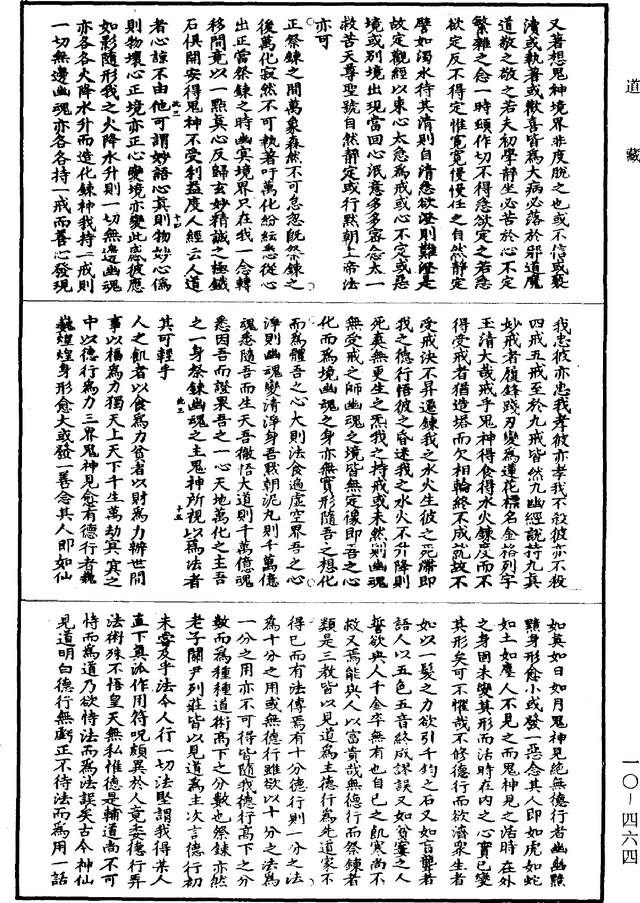 道藏
又著想鬼神境界非度脫之也或不信或褻
瀆或執著或歡喜皆為大病必落於邪道魔
道敬之敬之若夫初學靜坐必苦於心不定
繁雜之念一時頓作切不得急欲定之若急
欲定反不得定惟寬寬慢慢任之自然靜定
譬如濁水待其清則自清急欲澄則難澄是
故定觀經以束心太急為戒或心不定或惡
境或別境出現當回心泯意多多容忍太一
救苦天尊聖號自然靜定或行默朝上帝法
亦可
正祭鍊之間萬象森然不可怠忽既祭鍊之
後萬化寂然不可執著吁萬化紛紜悉從心
出正當祭鍊之時幽冥境界只在我一念轉
移間竟以一點真心反歸玄妙精誠之極鐵
石俱開安得鬼神不受利益度人經云人道
者心諒不由他可謂妙語心真則物妙心偽
則物壞心正境亦正心變境亦變此感彼應
如影隨形我之火降水升則一切無邊幽魂
亦各各火降水升而造化鍊神我持一戒則
一切無邊幽魂亦各各持一戒而善心發現
我忠彼亦忠我孝彼亦孝我不殺彼亦不殺
四戒五戒至於九戒皆然九幽經說持九真
妙戒者履鋒踐刃變為蓮花標名金格列字
玉清大哉戒乎鬼神得食得水火鍊度而不
得受戒者猶造塔而欠相輪終不成就故不
受戒決不昇遷鍊我之水火生彼之死滯即
我之德行悟彼之昏迷我之水火不升降則
死魂無更生之炁我之持戒或未然則幽魂
無受戒之師幽魂之境皆無定像即吾之心
化而為境幽魂之身亦無實形隨吾之想化
而為體吾之心大則法食遍虛空界吾之心
淨則幽魂變清淨身吾默朝泥丸則千萬億
魂悉隨吾而生天吾徹悟大道則千萬億魂
悉因吾而證果吾之一心天地萬化之主吾
之一身祭鍊幽魂之主鬼神所視以為法者
其可輕乎
人之飢者以食為力貧者以財為力辦世間
事以福為力獨天上天下千生萬劫冥冥之
中以德行為力三界鬼神見愈有德行者巍
巍煌煌身形愈大或發一善念其人即如仙
如英如日如月鬼神見絕無德行者幽幽黯
黯身形愈小或發一惡念其人即如虎如蛇
如土如塵人不見之而鬼神見之活時在外
之身固未變其形而活時在內之心實已變
其形矣可不懼哉不修德行而欲濟眾生者
如以一髮之力欲引千鈞之石又如盲聾者
語人以五色五音終成謬誤又如貧窶之人
誓欲與人千金卒無有也自己之飢寒尚不
救又焉能與人以富貴哉無德行而祭鍊者
類是三教皆以見道為主德行為先道家不
得已而有法傳焉有十分德行則一分之法
為十分之用或無德行雖欲以十分之法為
一分之用亦不可得皆隨我德行高下之分
數而為種種道術高下之分數也祭鍊亦然
老子關尹列莊皆以見道為主次言德行初
未嘗及乎法今人行一切法堅謂我得某人
直下真派作用符呪頗異於人竟委德行弄
法術殊不悟皇天無私惟德是輔道尚不可
恃而為道乃欲恃法而為法誤矣古今神仙
見道明白德行無虧正不待法而為用一話
一〇－四六四